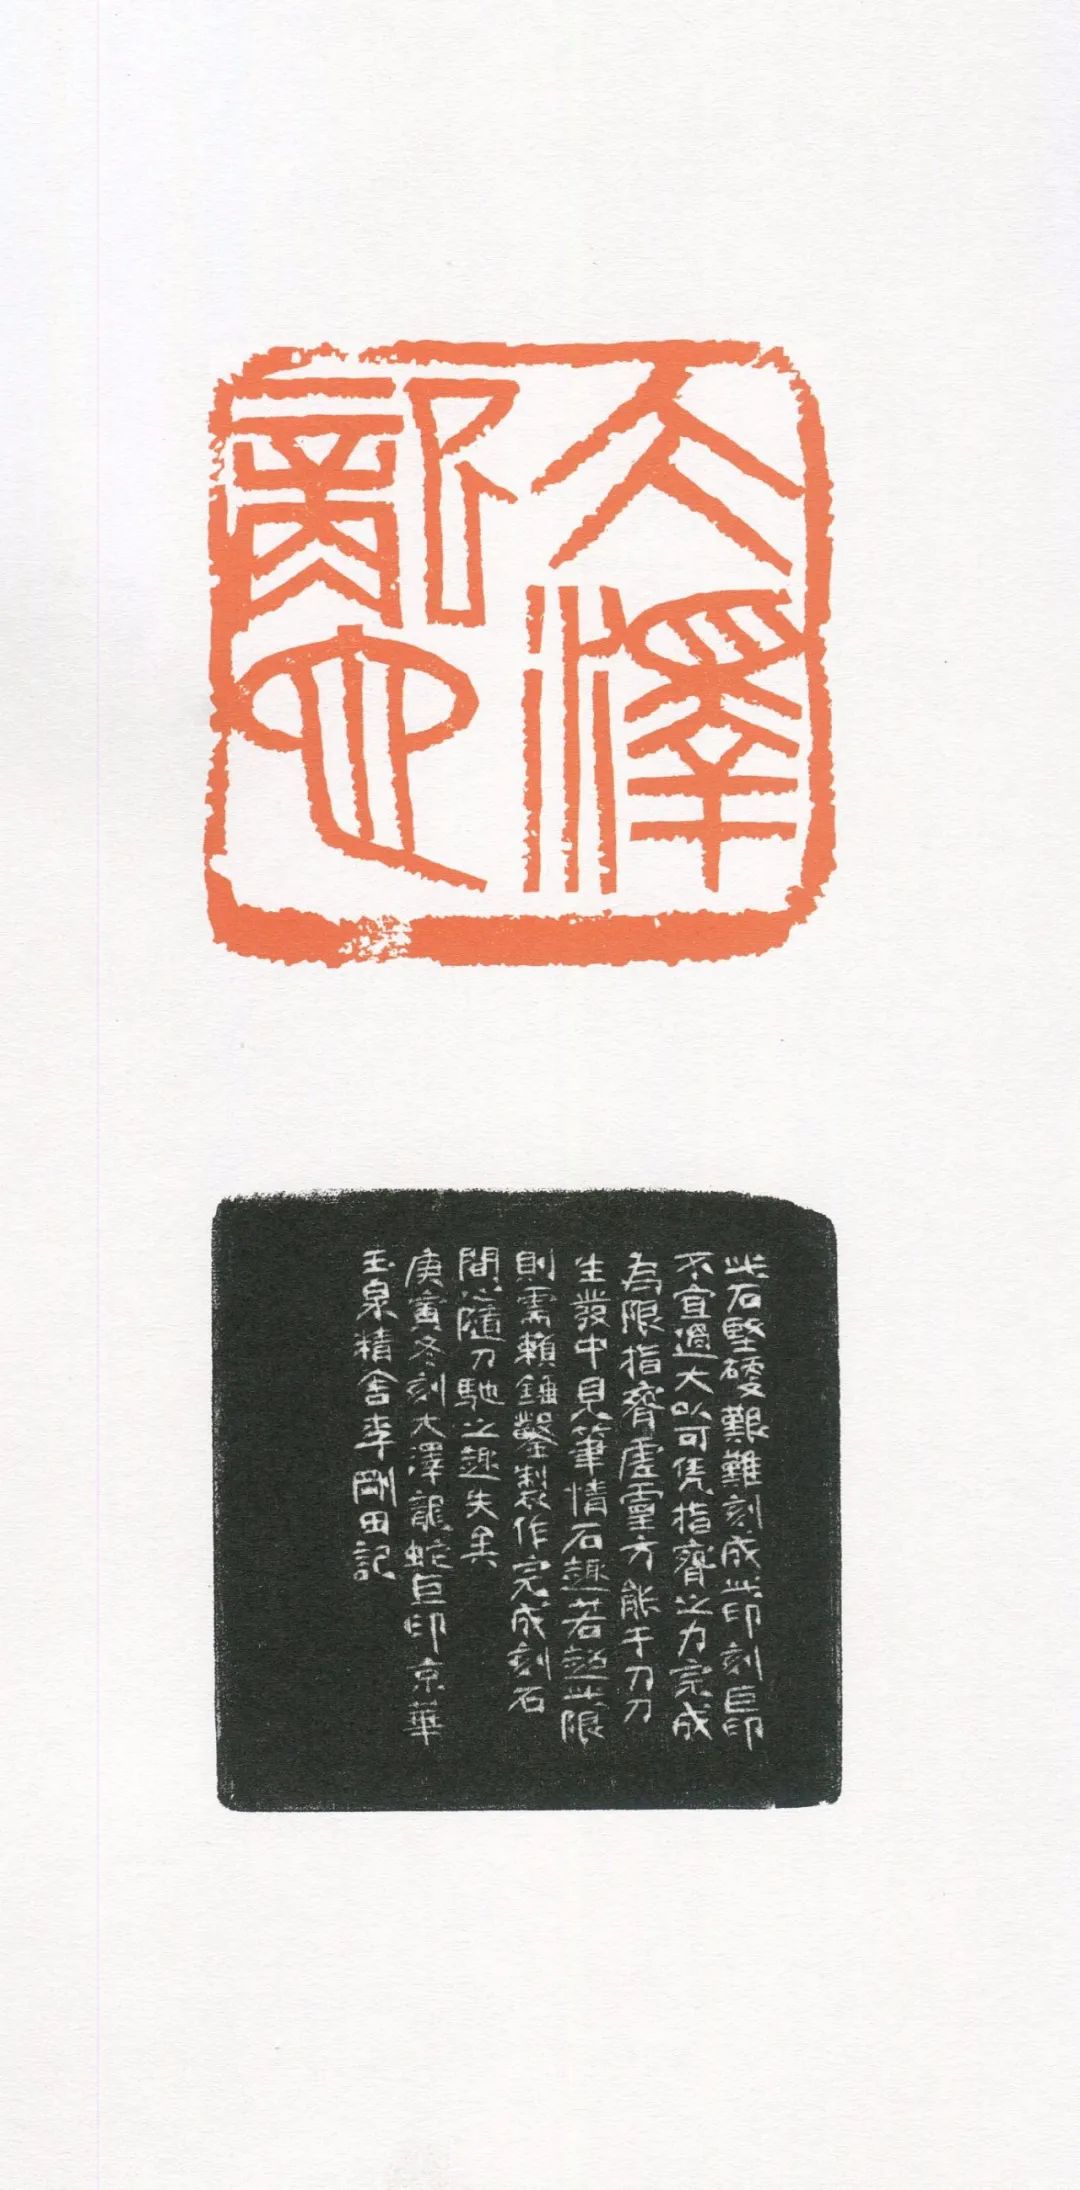 大澤
龍蛇
此石堅硬艱難刻成此印刻巨印
不宜過大以可凭指腕之力完成
為限指齊虛靈方能于刀刀
生發中見筆情石趣若越此限
則需賴錘鑿製作完成刻石
間隨刀馳之趣失矣
庚寅冬刻大澤龍蛇巨印京華
玉泉精舍李剛田記